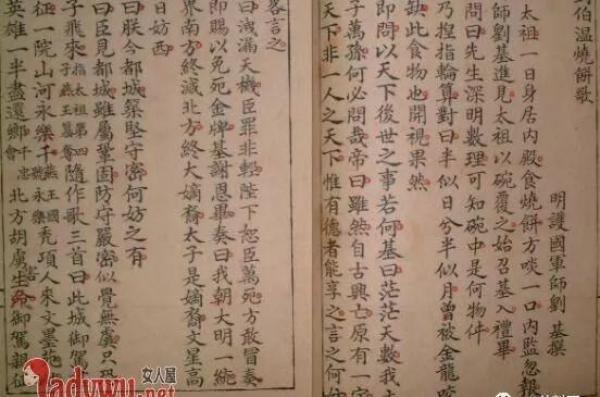 伯温燒餅歌
明護國軍師劉 基撰
太祖一日身居內殿食燒餅方啖一口內監忽報
師劉基進見太祖以碗覆之始召基入禮畢
問曰先生深明數理可知碗中是何物件
乃揑指輪算對曰半似日兮半似月曾被金龍咬
缺此食物也開視果然
即問以天下後世之事若何基曰茫茫天數我
子萬孫何必問哉帝曰雖然自古興亡原有一定
天下非一人之天下惟有德者能享之言之何
畧言之
曰洩漏天機臣罪非輕陛下恕臣萬死方敢冒奏
即賜以免死金牌基謝恩畢奏曰我朝大明一統
界南方終滅北方終大嫡裔太子是嫡裔文星高
日妨西
曰朕今都城築堅守密何妨之有
曰臣見都城雖屬鞏固防守嚴密似覺無虞只恐
子飛來指太祖第四子燕王篡奪隨作歌三首曰此城御駕
征一院山河永樂平燕王國號永樂禿頂人來文墨苑
英雄一半盡還鄉北方胡虜生命御駕親征
ladywu.net
女人屋